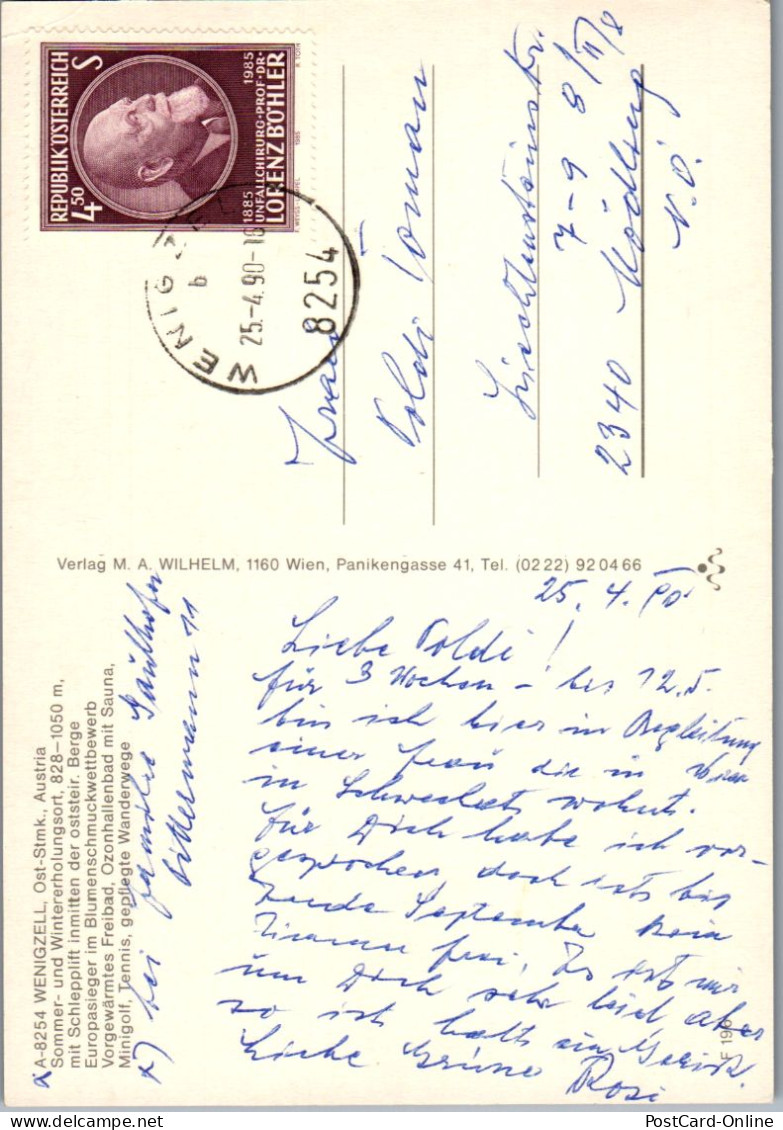 REPUBLIK ÖSTERREICH
4 50 S
1885 1985
UNFALLCHIRURG·PROF·DR·
LORENZ BÖHLER
WENIGZELL
b
25.-4.90-18
8254
Frau
Poldi Toman
Liechtensteinstr.
7-9 8/II/8
2340 Mödling
N.Ö.
Verlag M. A. WILHELM, 1160 Wien, Panikengasse 41, Tel. (02 22) 92 04 66
A-8254 WENIGZELL, Ost-Stmk., Austria
Sommer- und Wintererholungsort, 828–1050 m,
mit Schlepplift inmitten der oststeir. Berge
Europasieger im Blumenschmuckwettbewerb
Vorgewärmtes Freibad, Ozonhallenbad mit Sauna,
Minigolf, Tennis, gepflegte Wanderwege
x) bei Familie
11
25. 4. 90
Liebe Poldi!
für 3 Wochen – bis 12.5.
bin ich hier in Begleitung
einer Frau die in Wien
in Schwechat wohnt.
Für Dich habe ich vor-
gesprochen doch ist bis
Ende September kein
Zimmer frei. Es tut mir
um Dich sehr leid aber
so ist halt ein
Liebe Grüße Rosi
F 196
PostCard-Online